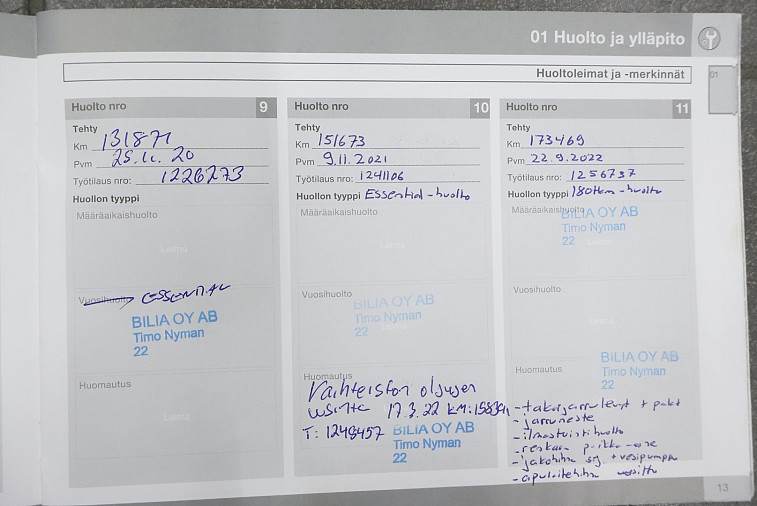 01 Huolto ja ylläpito
Huoltoleimat ja -merkinnät
01
Huolto nro 9
Tehty
Km 131871
Pvm 25.11.20
Työtilaus nro: 1226273
Huollon tyyppi
Määräaikaishuolto
Leima
Vuosihuolto ESSENTIAL
BILIA OY AB
Timo Nyman
22
Huomautus
Leima
Huolto nro 10
Tehty
Km 151673
Pvm 9.11.2021
Työtilaus nro: 1241106
Huollon tyyppi Essential-huolto
Määräaikaishuolto
Leima
Vuosihuolto
BILIA OY AB
Timo Nyman
22
Huomautus
Vaihteiston öljyjen
17.3.22 KM:
T: 1248457
BILIA OY AB
Timo Nyman
22
Huolto nro 11
Tehty
Km 173469
Pvm 22.9.2022
Työtilaus nro: 1256737
Huollon tyyppi 180tkm-huolto
Määräaikaishuolto
BILIA OY AB
Timo Nyman
22
Leima
Vuosihuolto
Leima
Huomautus
BILIA OY AB
Timo Nyman
22
-takajarrulevyt + palat
-jarruneste
-ilmastointihuolto
-jakohihna srj. + vesipumppu
-apulaitehihna uusittu
13